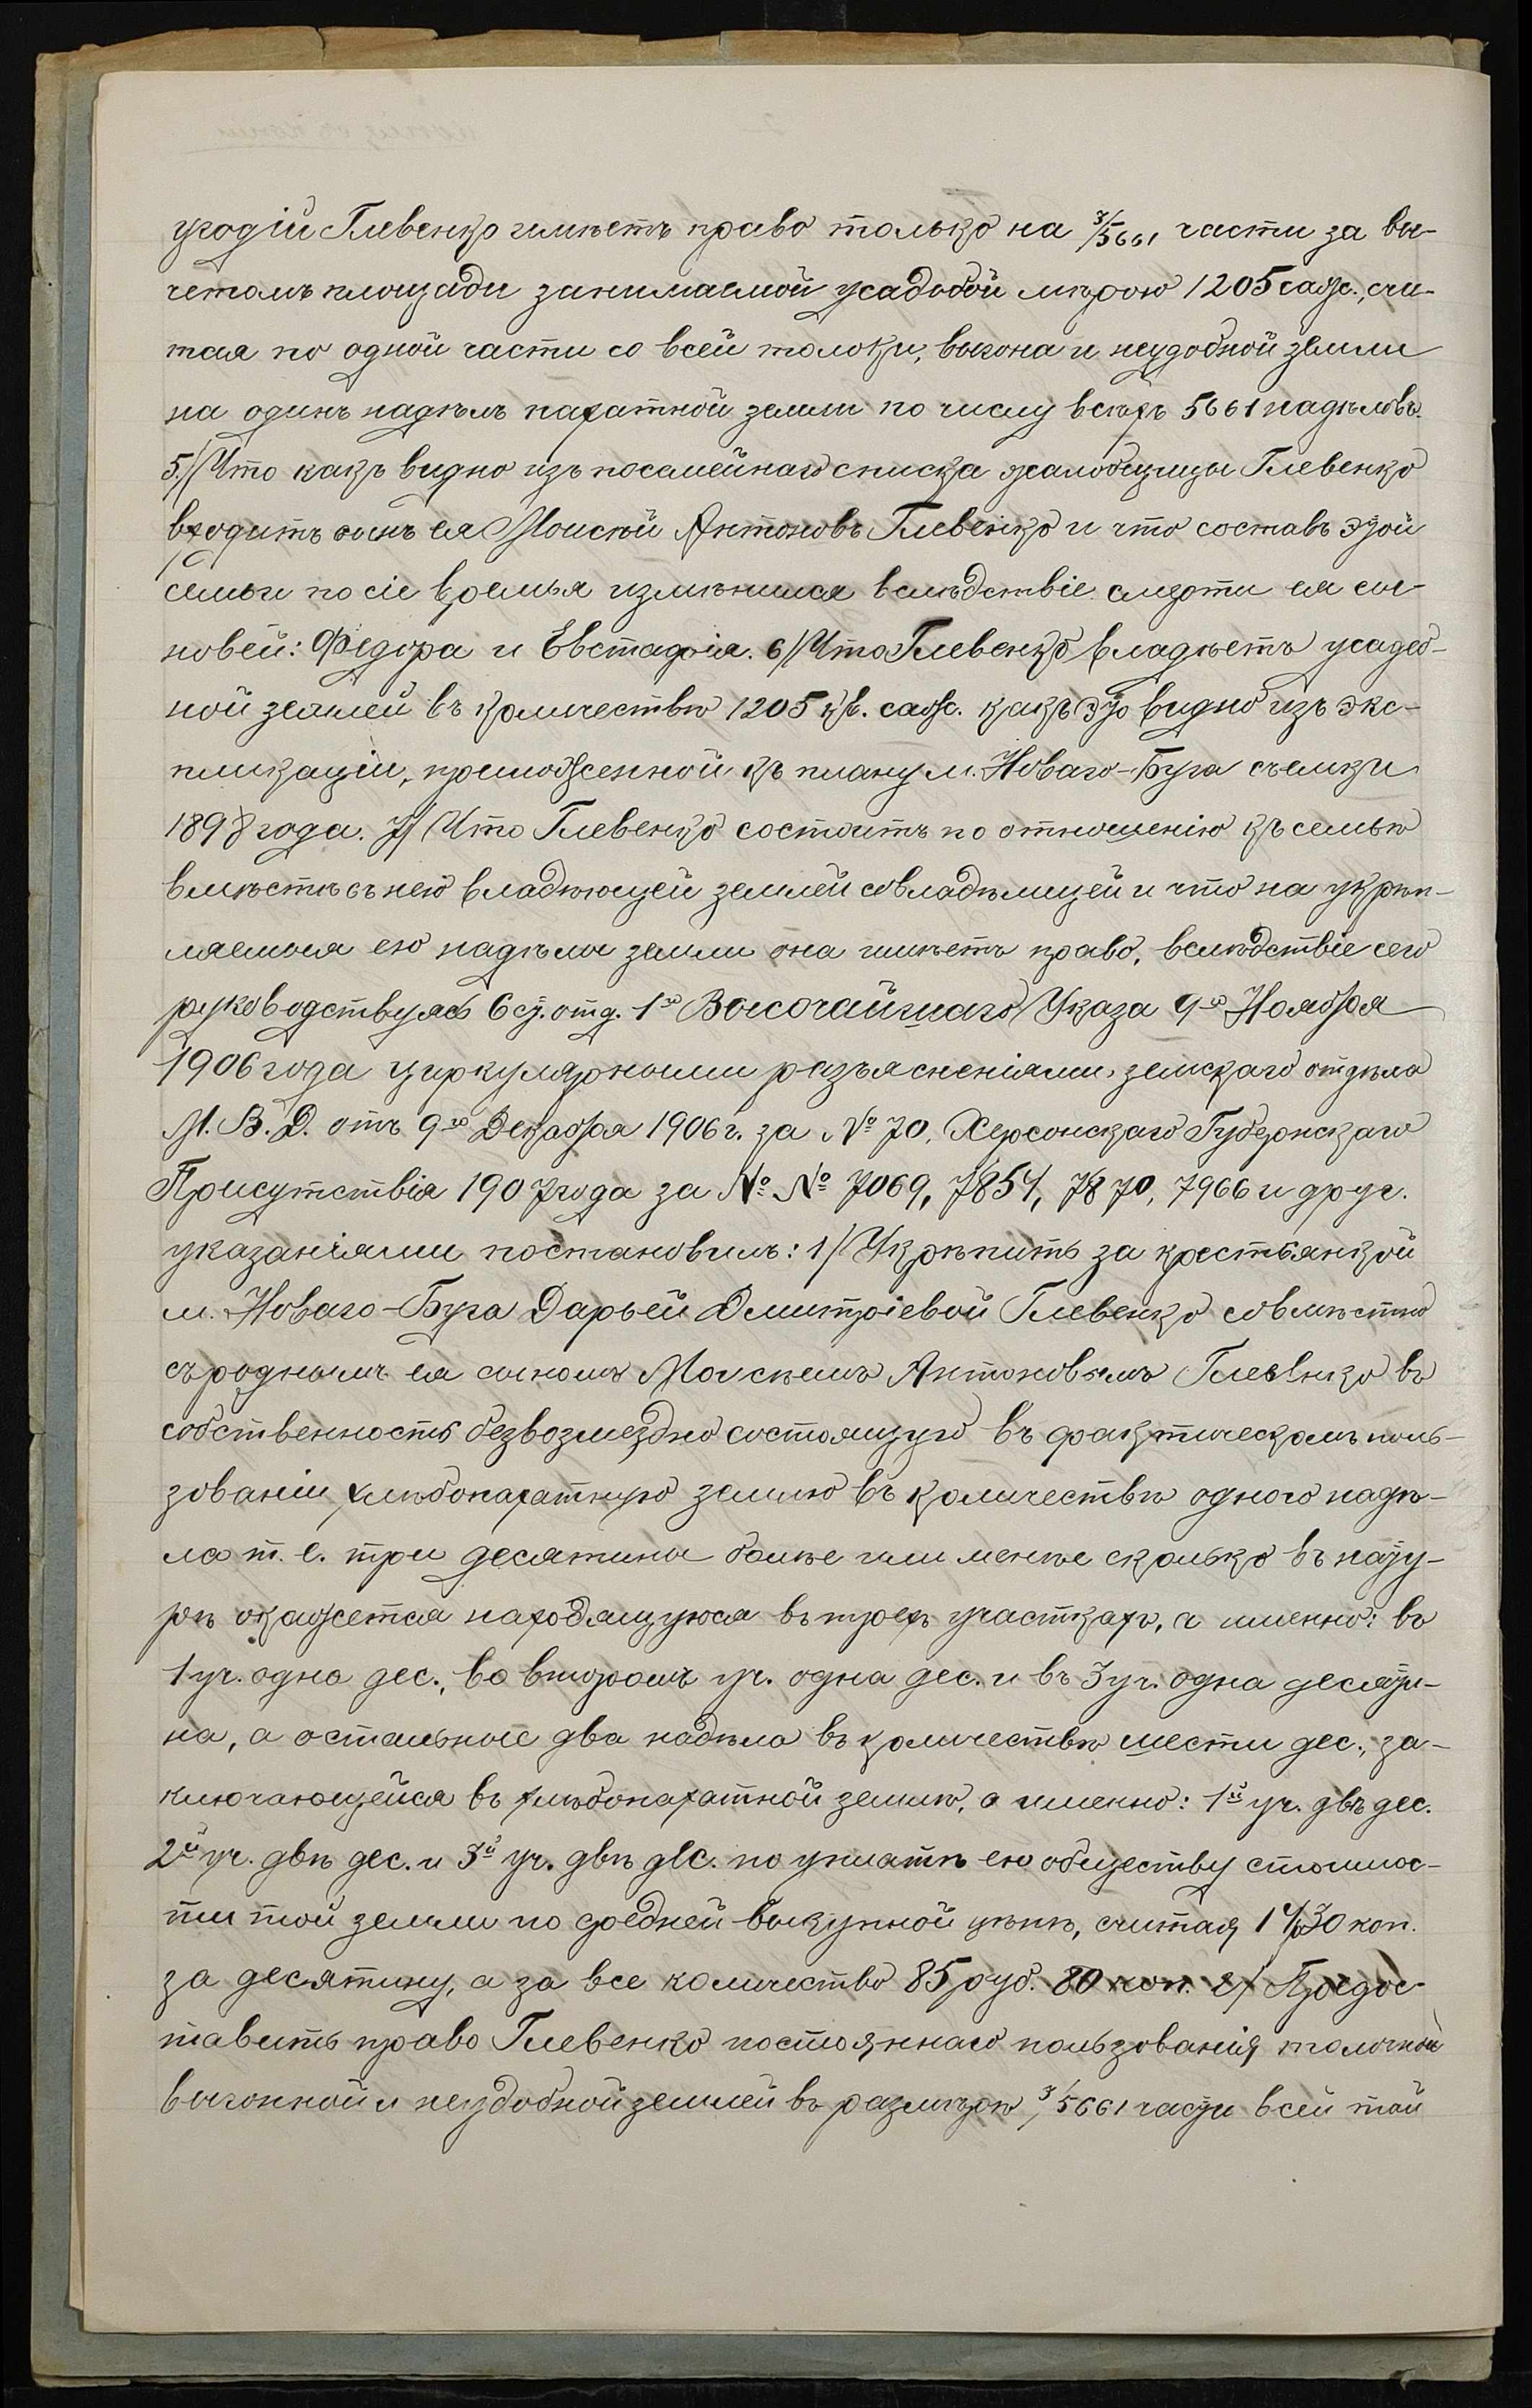 угодій Глевенко имѣетъ право только на 3/5661 части за вы-
четомъ площади занимаемой усадьбой мѣрою 1205 саж., счи-
тая по одной части со всей толоки, выгона и неудобной земли
на одинъ надѣлъ пахатной земли по числу всѣхъ 5661 надѣловъ.
5/ Что какъ видно изъ посемейнаго списка жалобщицы Глевенко
входитъ сынъ ея Моисей Антоновъ Глевенко и что составъ этой
семьи по сіе время измѣнился вслѣдствіе смерти ея сы-
новей: Федора и Евстафія. 6/ Что Глевенко владѣетъ усадеб-
ной землей въ количествѣ 1205 кв. саж. какъ это видно изъ экс-
пликаціи, приложенной къ плану м. Новаго-Буга съемки
1898 года. 7/ Что Глевенко состоитъ по отношенію къ семьѣ
вмѣстѣ съ нею владѣющей землей совладѣлицей и что на укрѣп-
ляемыя ею надѣлы земли она имѣетъ право, вслѣдствіе сего
руководствуясь 6 ст. отд. 1го Высочайшаго Указа 9го Ноября
1906 года циркулярными разъясненіями земскаго отдѣла
М. В. Д. отъ 9го Декабря 1906 г. за № 70, Херсонскаго Губернскаго
Присутствія 1907 года за № № 7069, 7854, 7870, 7966 и друг.
указаніями постановилъ: 1/ Укрѣпить за крестьянкой
м. Новаго-Буга Дарьей Дмитріевой Глевенко совмѣстно
съ роднымъ ея сыномъ Моисеемъ Антоновымъ Глевенко въ
собственность безвозмездно состоящую въ фактическомъ поль-
зованіи хлѣбопахатную землю въ количествѣ одного надѣ-
ла т. е. три десятины болѣе или менѣе сколько въ нату-
рѣ окажется находящуюся въ трехъ участкахъ, а именно: въ
1 уч. одна дес., во второмъ уч. одна дес. и въ 3 уч. одна десяти-
на, а остальные два надѣла въ количествѣ шести дес., за-
ключающейся въ хлѣбопахатной землѣ, а именно: 1й уч. двѣ дес.
2й уч. двѣ дес. и 3й уч. двѣ дес. по уплатѣ ею обществу стоимос-
ти той земли по средней выкупной цѣнѣ, считая 14 р. 30 коп.
за десятину, а за все количество 85 руб. 80 коп. 2/ Предос-
тавить право Глевенко постояннаго пользованія толочной
выгонной и неудобной землей въ размѣрѣ 3/5661 части всей той